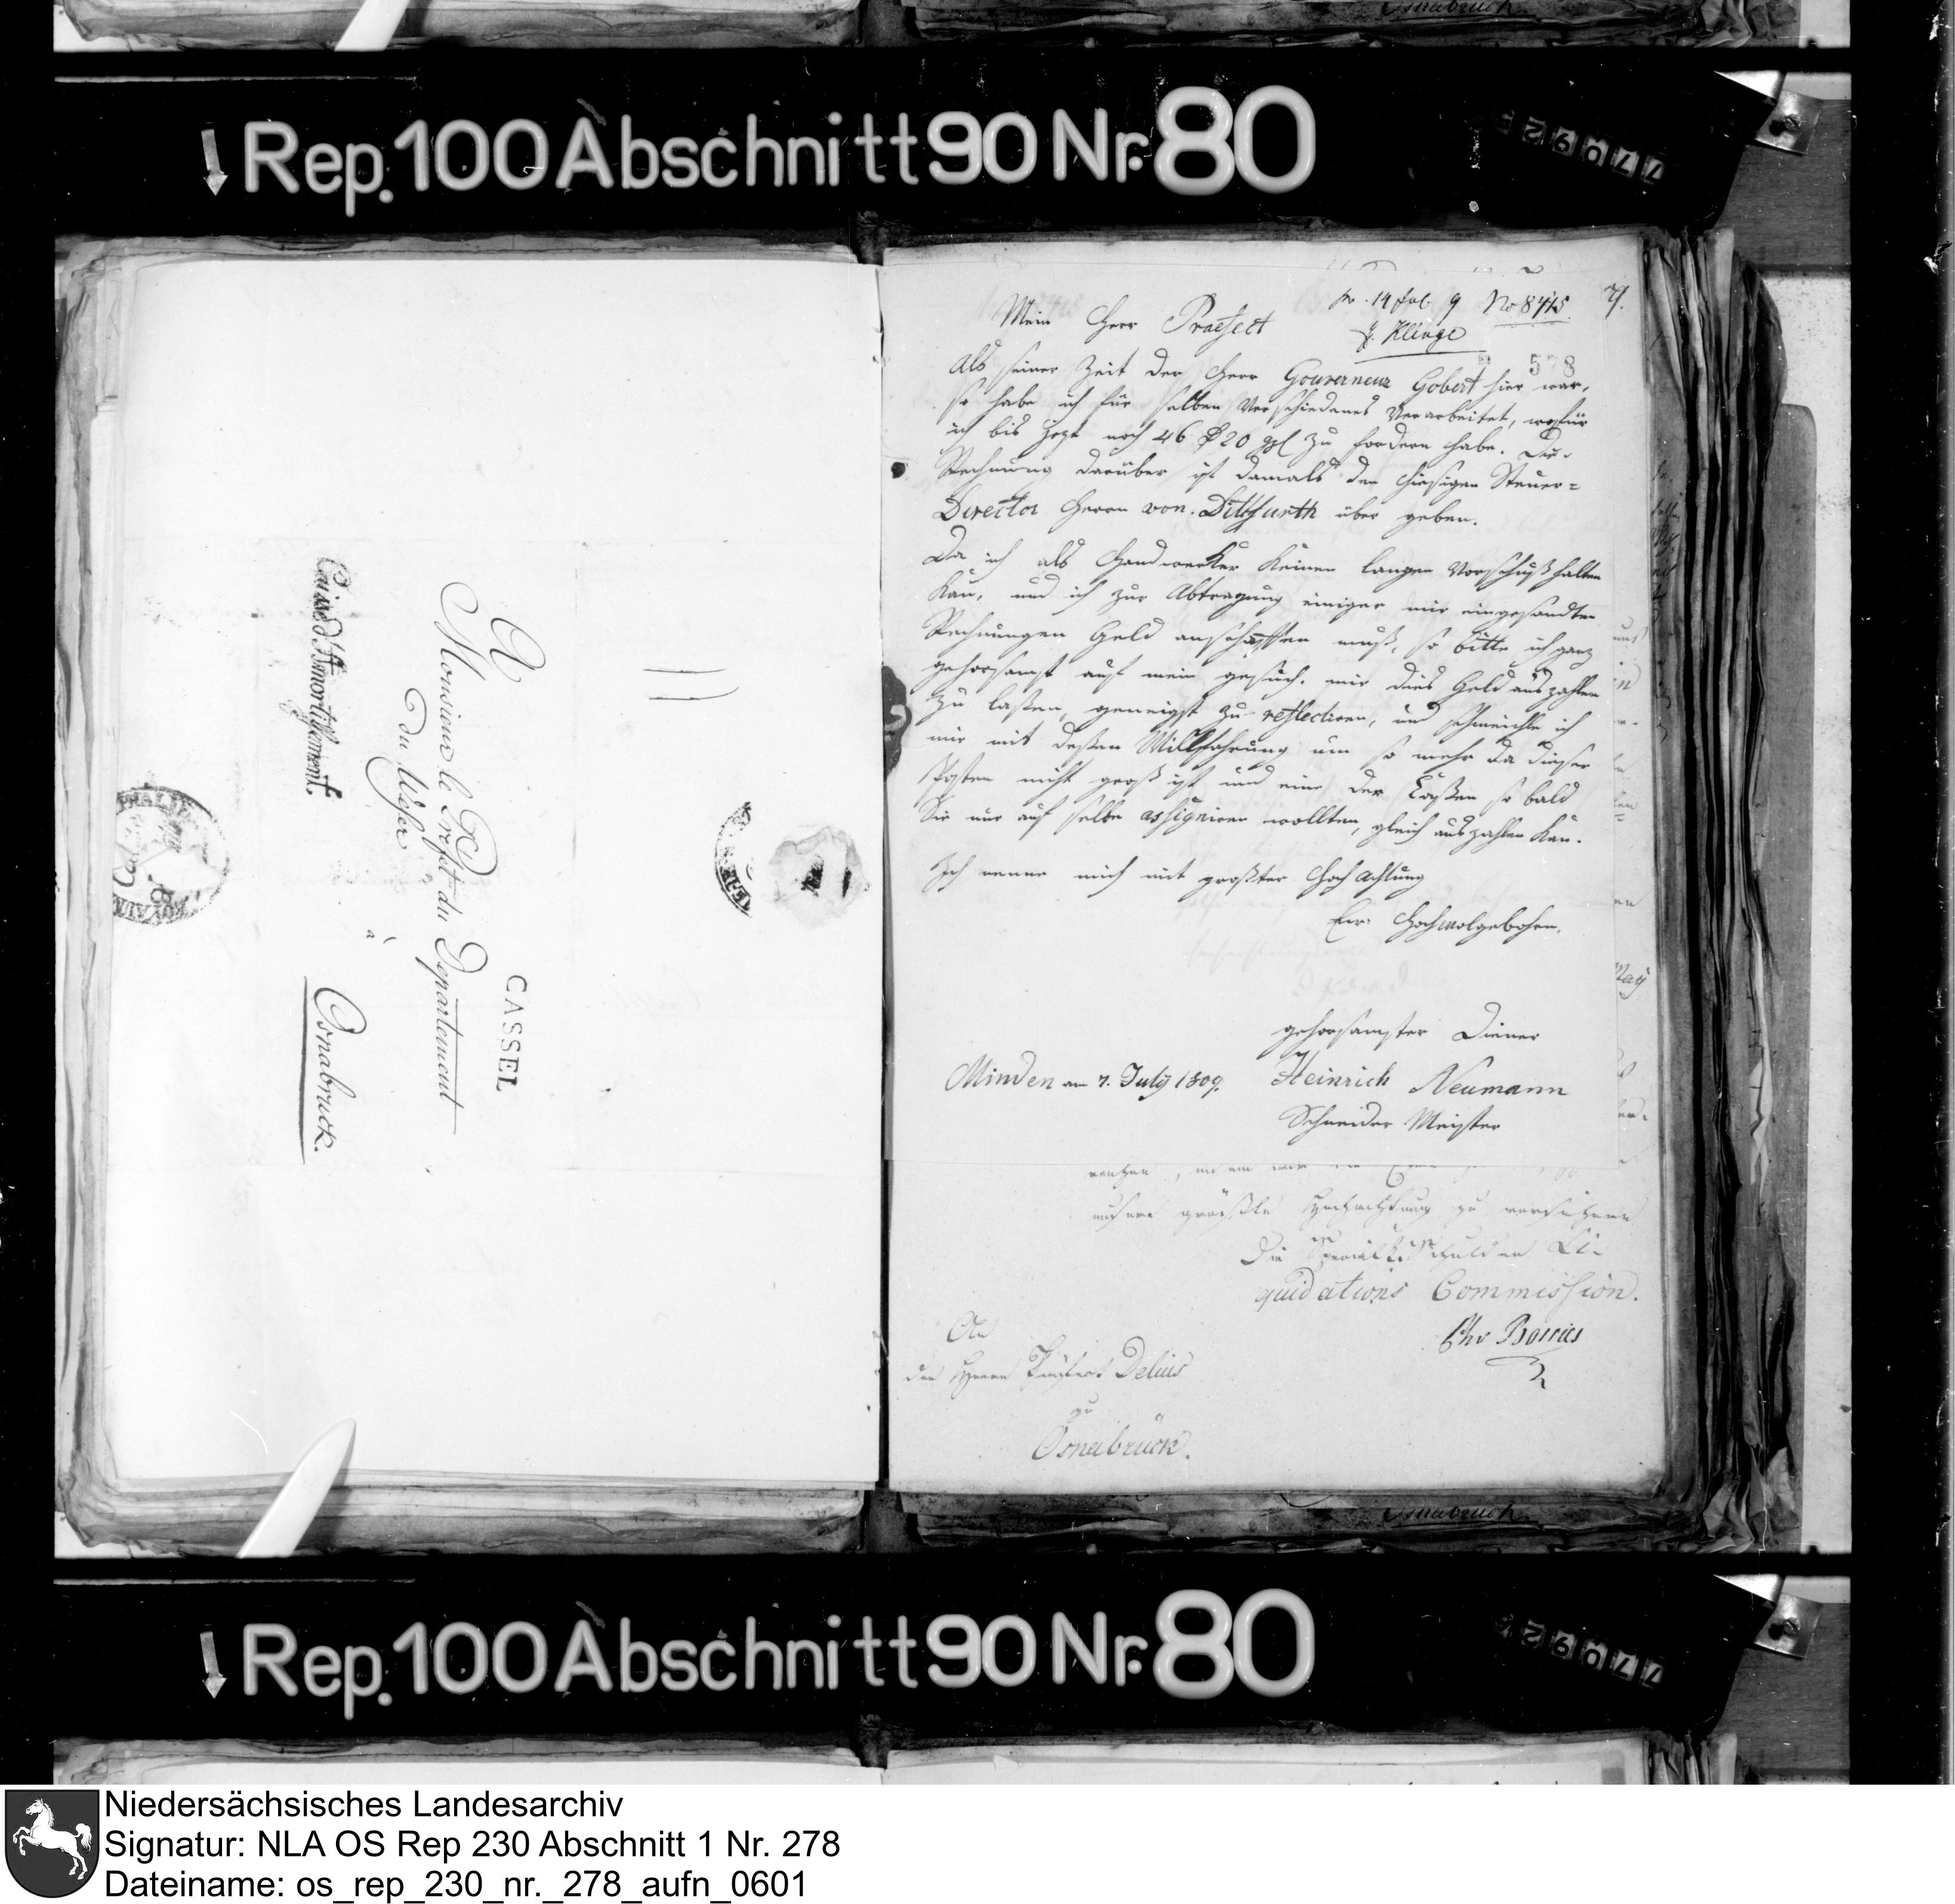 Osnabruck.
Rep. 100 Abschnitt 90 Nr. 80
A
Monsieur le Préfet du Département
du Weser
à
Osnabruck.
Caisse d'Amortissement.
CASSEL
pr. 14 Jul. 9 No 8415. 7.
H. Klinge
578
Mein Herr Praefect
Als seiner Zeit der Herr Gouverneur Gobert hier war,
so habe ich für selben Verschiedenes Verarbeitet, wofür
ich bis Jezt noch 46 20 zu fordern habe. Die
Rechnung darüber ist damals den hiesigen Steuer=
Director Herrn von Dittfurth über geben.
Da ich als Handwerker keinen langen Vorschuß halten
kan, und ich zur Abtragung einiger mir eingesandten
Rechnungen Geld anschaffen muß, so bitte ich ganz
gehorsamst auf mein gesuch, mir dies Geld auszahlen
zu laßen, geneigt zu reflectiren, und schmeichle ich
mir mit deßen Willfahrung um so mehr da dieser
Posten nicht groß ist und eine der Caßen so bald
Sie nur auf selbe assigniren wollten, gleich auszahlen kan.
Ich nenne mich mit großter Hochachtung
Eur. Hochwolgebohrn.
gehorsamster Diener
Minden am 7. July 1809. Heinrich Neumann
Schneider Meister
unsere größte Hochachtung zu versichern
Die Special Schulden Li-
quidations Commission.
Chv Borries
An
den Herrn Präfect Delius
zu
Osnabrück.
Osnabruck.
Rep. 100 Abschnitt 90 Nr. 80
Niedersächsisches Landesarchiv
Signatur: NLA OS Rep 230 Abschnitt 1 Nr. 278
Dateiname: os_rep_230_nr._278_aufn_0601